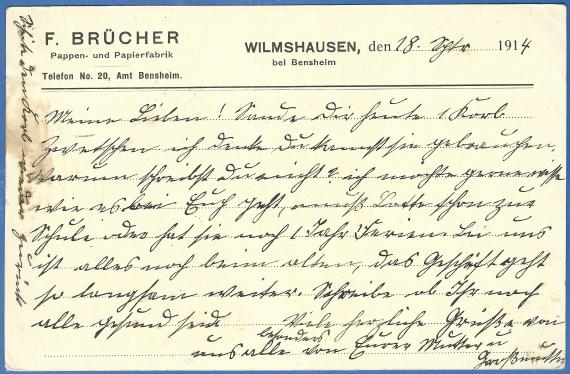 F. BRÜCHER
Pappen- und Papierfabrik
Telefon No. 20, Amt Bensheim.
WILMSHAUSEN, den 18. Sptr 1914
bei Bensheim
Meine Lieben! Sande dir heute 1 Korb
Zwetschen ich denke du kannst sie gebrauchen,
warum schreibst du nicht? ich möchte gerne wisse
wie es Euch geht, muß Lotte schon zur
Schule oder hat sie noch 1 Jahr Ferien. Bei uns
ist alles noch beim alten, das Geschäft geht
so langsam weiter. Schreibe ob Ihr noch
alle gesund seid. Viele herzliche Grüße von
uns alle besonders von Eurer Mutter u
Großmutter
Schicke den Korb wieder zurück